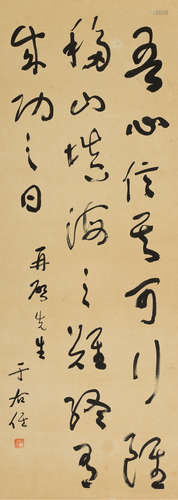 吾心信其可行雖
移山填海之難終有
成功之日
再啟先生
于右任